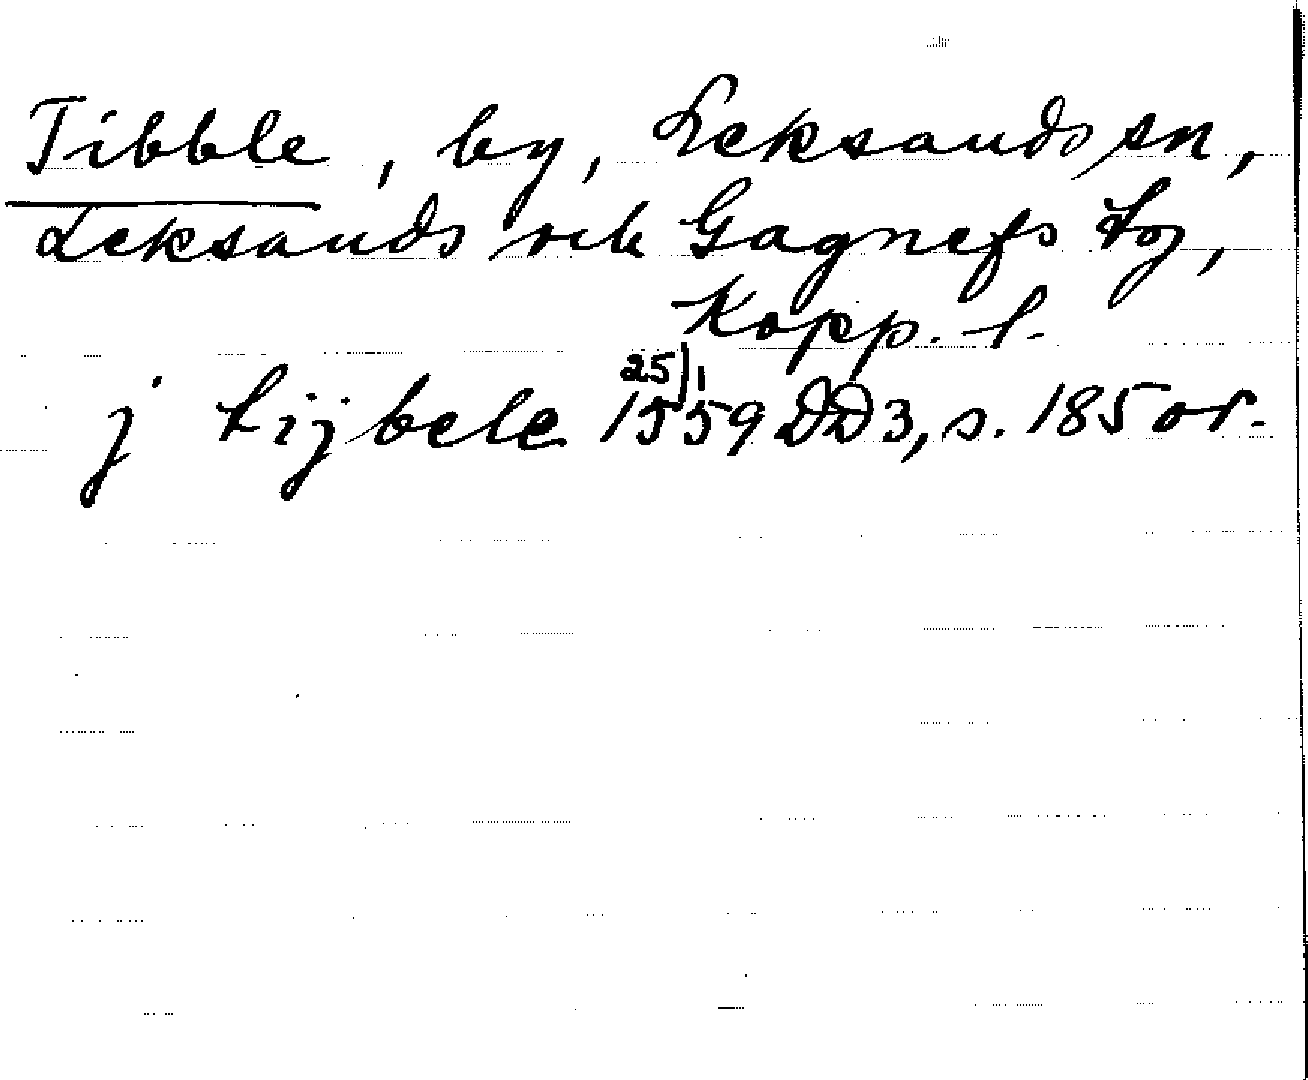 Tibble, by, Leksands sn,
Leksands och Gagnefs tg,
Kopp. l.
j tijbele 25/1 1559 DD 3, s. 185 or.